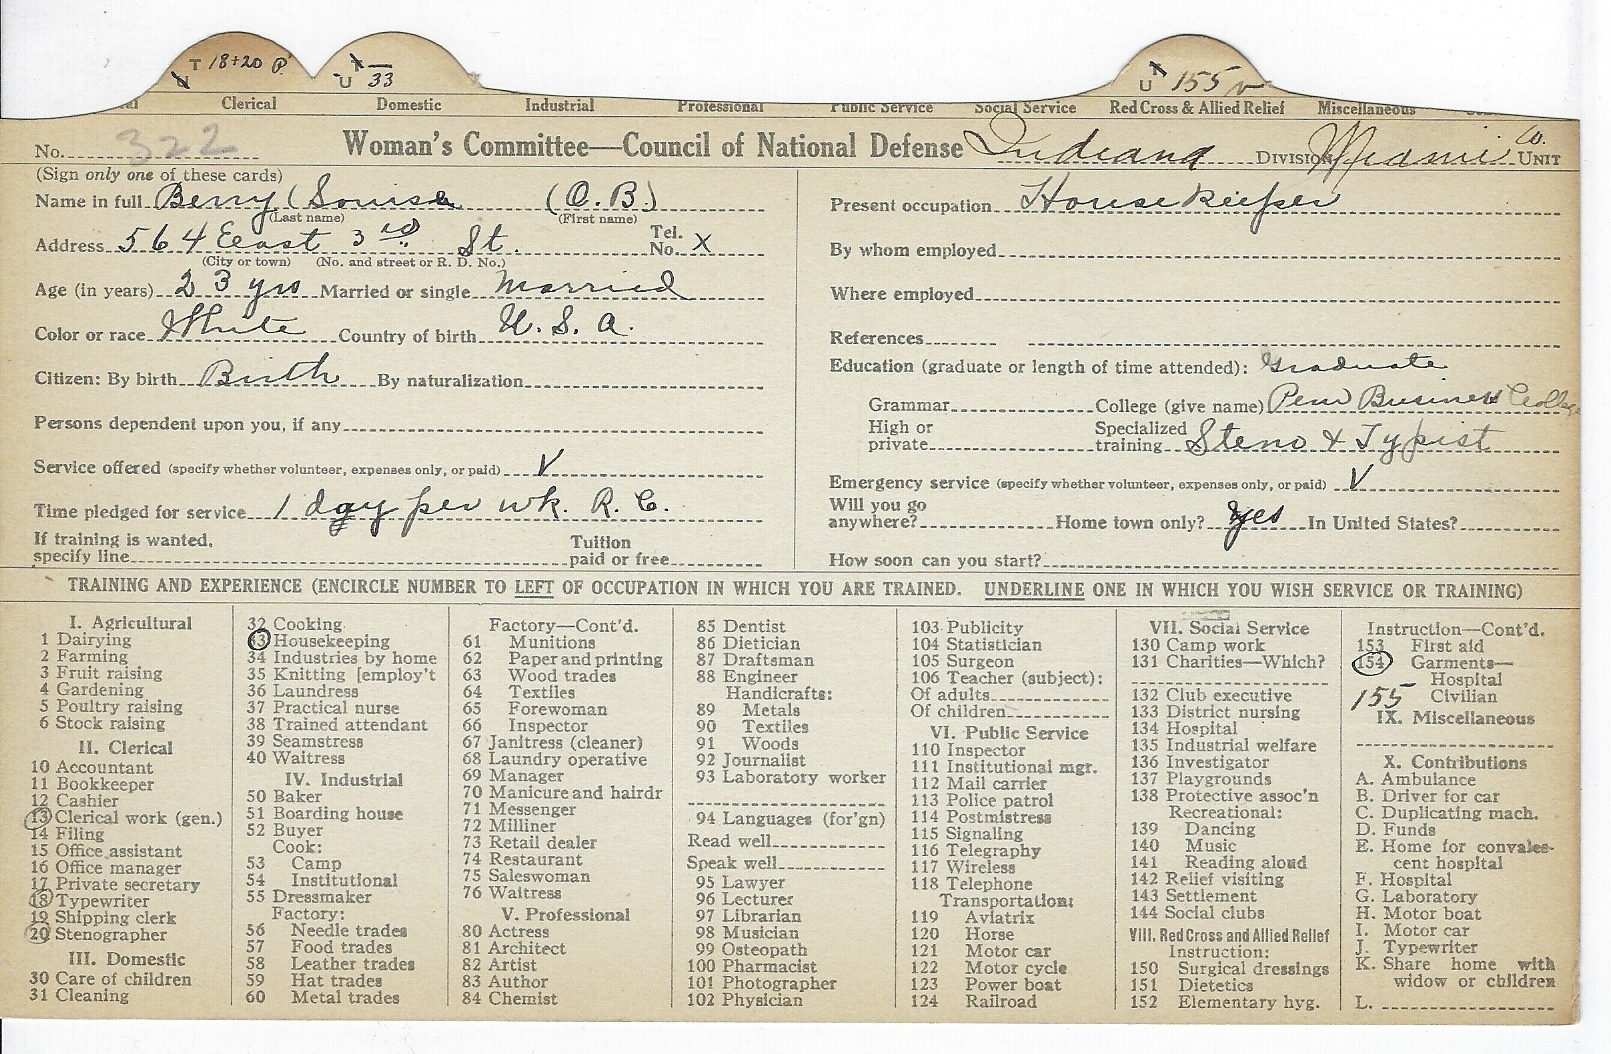 T 18+20 P.
N
U X 33
U X 155 v
al Clerical Domestic Industrial Professional Public Service Social Service Red Cross & Allied Relief Miscellaneous
No. 322 Woman's Committee—Council of National Defense Indiana Division Miami Co. Unit
(Sign only one of these cards)
Name in full Berry (Louise (O. B.)
(Last name) (First name)
Address 564 East 3rd St. Tel. No. X
(City or town) (No. and street or R. D. No.)
Age (in years) 23 yrs Married or single Married
Color or race White Country of birth U. S. A.
Citizen: By birth Birth By naturalization
Persons dependent upon you, if any
Service offered (specify whether volunteer, expenses only, or paid) V
Time pledged for service 1 day per wk. R. C.
If training is wanted, specify line Tuition paid or free
Present occupation House Keeper
By whom employed
Where employed
References
Education (graduate or length of time attended): Graduate
Grammar College (give name) Peru Business College
High or private Specialized training Steno & Typist
Emergency service (specify whether volunteer, expenses only, or paid) V
Will you go anywhere? Home town only? yes In United States?
How soon can you start?
TRAINING AND EXPERIENCE (ENCIRCLE NUMBER TO LEFT OF OCCUPATION IN WHICH YOU ARE TRAINED. UNDERLINE ONE IN WHICH YOU WISH SERVICE OR TRAINING)
I. Agricultural
1 Dairying
2 Farming
3 Fruit raising
4 Gardening
5 Poultry raising
6 Stock raising
II. Clerical
10 Accountant
11 Bookkeeper
12 Cashier
13 Clerical work (gen.)
14 Filing
15 Office assistant
16 Office manager
17 Private secretary
18 Typewriter
19 Shipping clerk
20 Stenographer
III. Domestic
30 Care of children
31 Cleaning
32 Cooking
33 Housekeeping
34 Industries by home
35 Knitting [employ't
36 Laundress
37 Practical nurse
38 Trained attendant
39 Seamstress
40 Waitress
IV. Industrial
50 Baker
51 Boarding house
52 Buyer
Cook:
53 Camp
54 Institutional
55 Dressmaker
Factory:
56 Needle trades
57 Food trades
58 Leather trades
59 Hat trades
60 Metal trades
Factory—Cont'd.
61 Munitions
62 Paper and printing
63 Wood trades
64 Textiles
65 Forewoman
66 Inspector
67 Janitress (cleaner)
68 Laundry operative
69 Manager
70 Manicure and hairdr
71 Messenger
72 Milliner
73 Retail dealer
74 Restaurant
75 Saleswoman
76 Waitress
V. Professional
80 Actress
81 Architect
82 Artist
83 Author
84 Chemist
85 Dentist
86 Dietician
87 Draftsman
88 Engineer
Handicrafts:
89 Metals
90 Textiles
91 Woods
92 Journalist
93 Laboratory worker
94 Languages (for'gn)
Read well
Speak well
95 Lawyer
96 Lecturer
97 Librarian
98 Musician
99 Osteopath
100 Pharmacist
101 Photographer
102 Physician
103 Publicity
104 Statistician
105 Surgeon
106 Teacher (subject):
Of adults
Of children
VI. Public Service
110 Inspector
111 Institutional mgr.
112 Mail carrier
113 Police patrol
114 Postmistress
115 Signaling
116 Telegraphy
117 Wireless
118 Telephone
Transportation:
119 Aviatrix
120 Horse
121 Motor car
122 Motor cycle
123 Power boat
124 Railroad
VII. Social Service
130 Camp work
131 Charities—Which?
132 Club executive
133 District nursing
134 Hospital
135 Industrial welfare
136 Investigator
137 Playgrounds
138 Protective assoc'n
Recreational:
139 Dancing
140 Music
141 Reading aloud
142 Relief visiting
143 Settlement
144 Social clubs
VIII. Red Cross and Allied Relief
Instruction:
150 Surgical dressings
151 Dietetics
152 Elementary hyg.
Instruction—Cont'd.
153 First aid
154 Garments—
Hospital
155 Civilian
IX. Miscellaneous
X. Contributions
A. Ambulance
B. Driver for car
C. Duplicating mach.
D. Funds
E. Home for convales-
cent hospital
F. Hospital
G. Laboratory
H. Motor boat
I. Motor car
J. Typewriter
K. Share home with
widow or children
L.